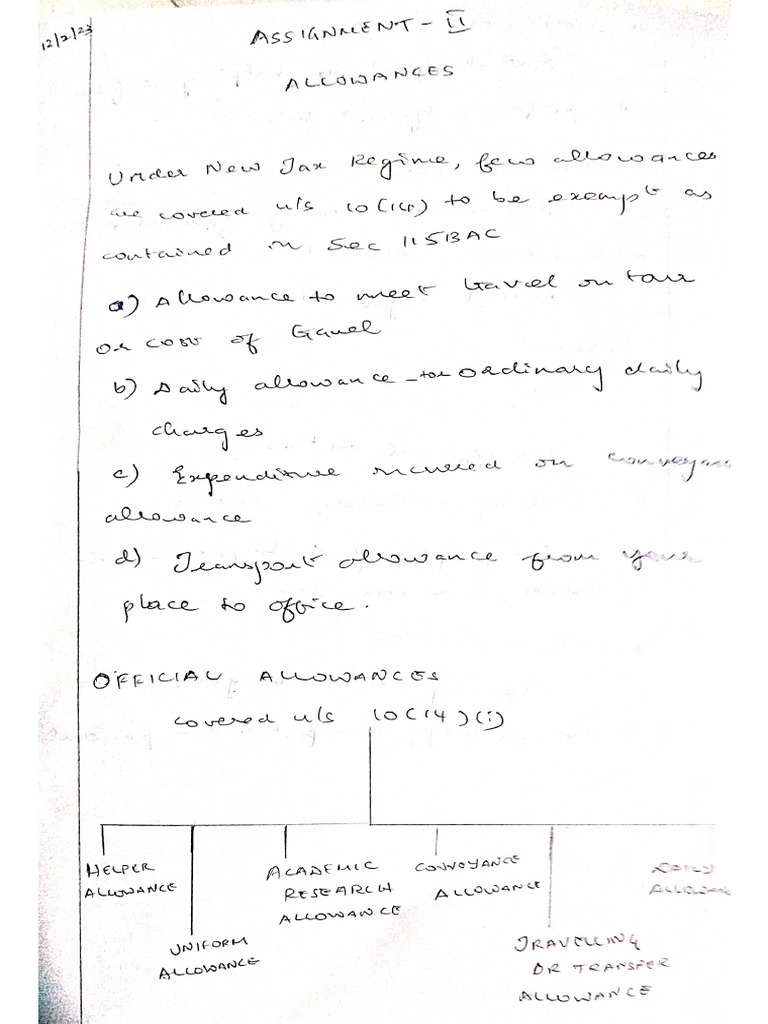 12/2/23
ASSIGNMENT - II
ALLOWANCES
Under New Tax Regime, few allowances
are covered u/s 10(14) to be exempt as
contained in Sec 115BAC
a) Allowance to meet travel on tour
or cost of travel
b) Daily allowance - for ordinary daily
charges
c) Expenditure incurred on conveyanc
allowance
d) Transport allowance from your
place to office.
OFFICIAL ALLOWANCES
covered u/s 10(14)(i)
HELPER ALLOWANCE
UNIFORM ALLOWANCE
ACADEMIC RESEARCH ALLOWANCE
CONVEYANCE ALLOWANCE
TRAVELLING OR TRANSFER ALLOWANCE
DAILY ALLOWANC